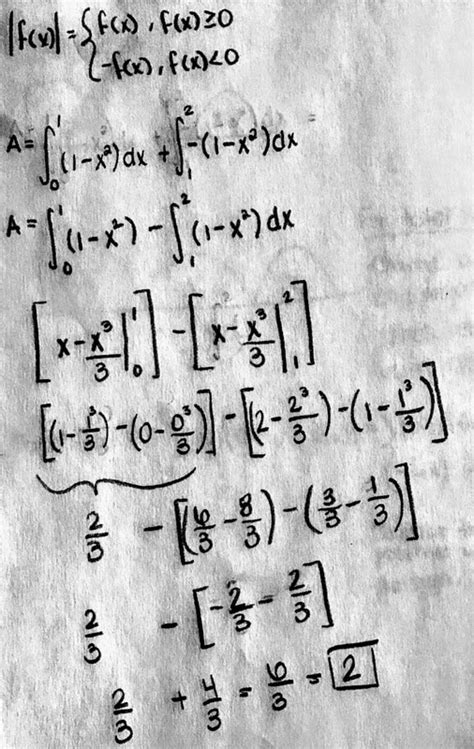 |f(x)| = { f(x), f(x) ≥ 0
-f(x), f(x) < 0
A = ∫₀¹ (1-x²) dx + ∫₁² -(1-x²) dx =
A = ∫₀¹ (1-x²) - ∫₁² (1-x²) dx
[x - x³/3 |₀¹] - [x - x³/3 |₁²]
[(1 - 1³/3) - (0 - 0³/3)] - [(2 - 2³/3) - (1 - 1³/3)]
2/3 - [(6/3 - 8/3) - (3/3 - 1/3)]
2/3 - [-2/3 - 2/3]
2/3 + 4/3 = 6/3 = 2